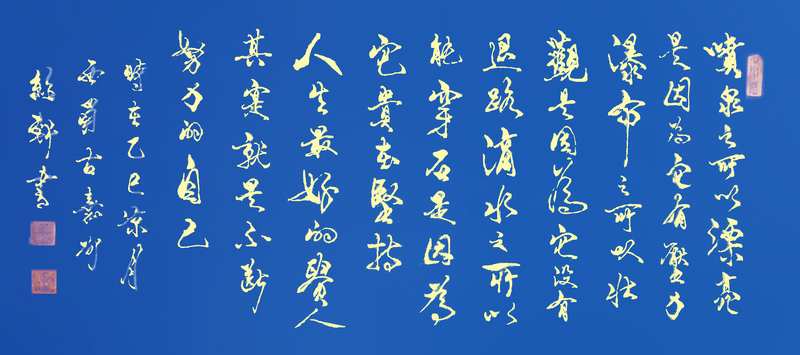 噴泉之所以漂亮
是因为它有壓力
瀑布之所以壮
觀是因為它没有
退路滴水之所以
能穿石是因為
它貴在堅持
人生最好的賢人
其實就是不断
努力的自己
時在乙巳月
西蜀古嘉州
書